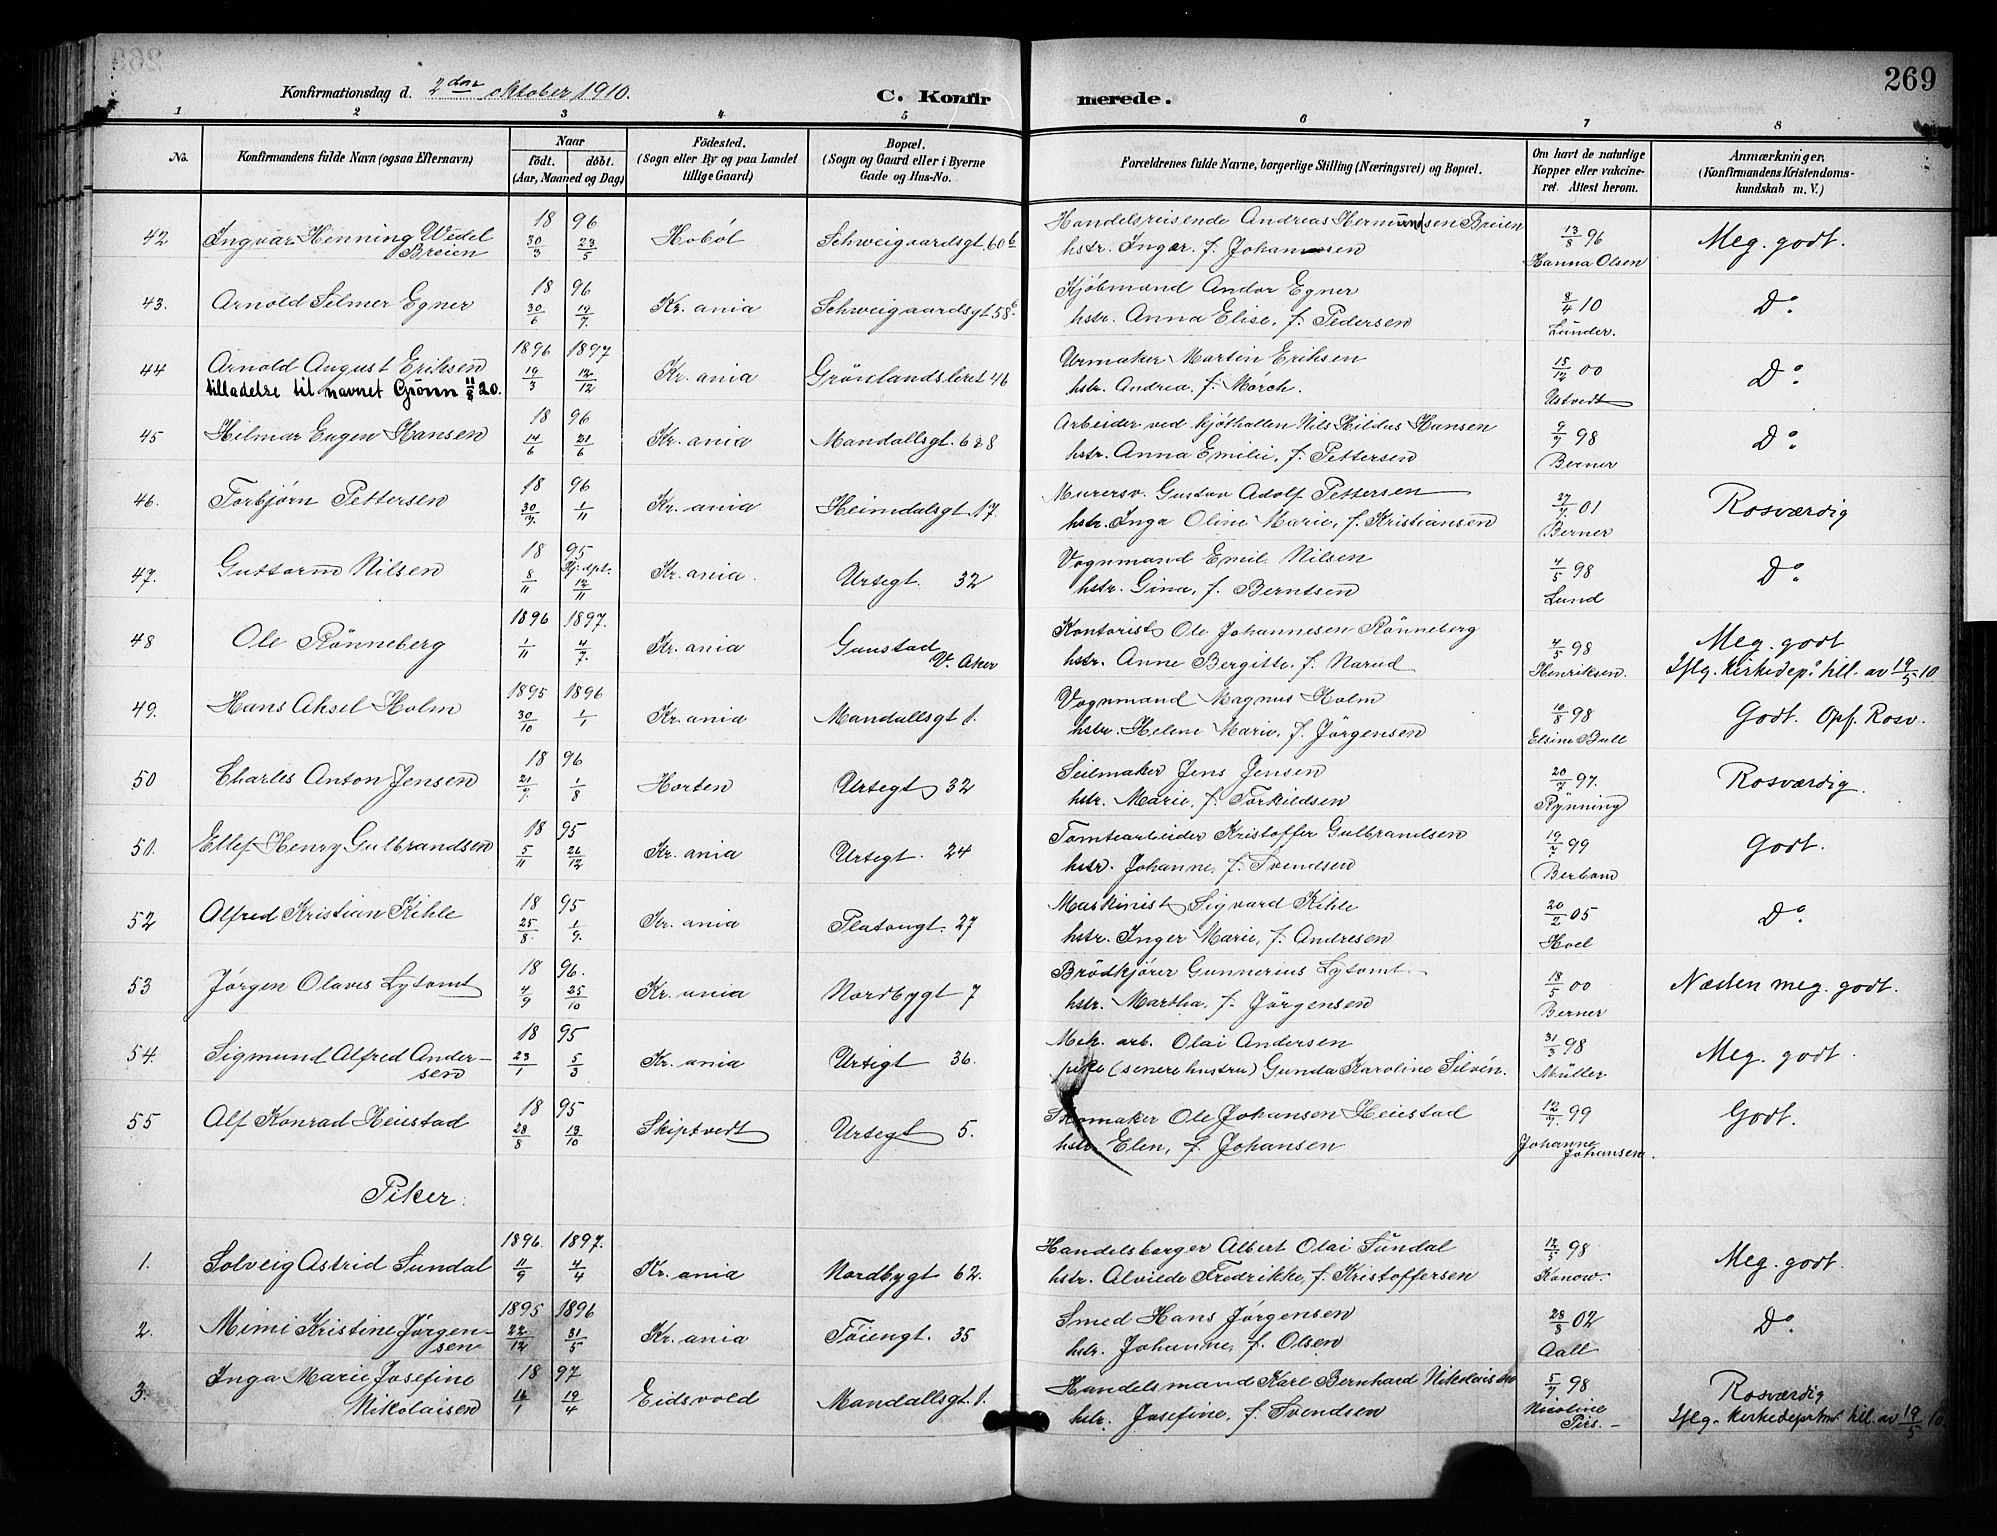 269
Konfirmationsdag d. 2den oktober 1910.
C. Konfirmerede.
1 2 3 4 5 6 7 8
No.
Konfirmandens fulde Navn (ogsaa Efternavn)
Naar
født. døbt.
(Aar, Maaned og Dag)
Fødested.
(Sogn eller By og paa Landet
tillige Gaard)
Bopæl.
(Sogn og Gaard eller i Byerne
Gade og Hus-No.
Forældrenes fulde Navne, borgerlige Stilling (Næringsvei) og Bopæl.
Om havt de naturlige
Kopper eller vakcine-
ret. Attest herom.
Anmærkninger.
(Konfirmandens Kristendoms-
kundskab m. V.)
42 Ingvar Henning Wedel Breien 18 96 30/3 23/5 Hobøl Schweigaardsgt. 60 b
Handelsreisende Andreas Hermundsen Breien
hstr. Ingar, f. Johannesen
13/8 96 Hanna Olsen Meg. godt.
43. Arnold Selmer Egner 18 96 30/6 19/7. Kr.ania Schweigaardsgt 58 b
Kjøbmand Andor Egner
hstr. Anna Elise, f. Pedersen
8/4 10 Lunder. Do.
44 Arnold August Eriksen 1896 1897 19/3 12/12 Kr.ania Grønlandsleret 46
tilladelse til navnet Grønn 11/8 20.
Urmaker Martin Eriksen
hstr. Andrea, f. Mörch.
15/12 00 Ustvedt Do.
45 Hilmar Eugen Hansen 18 96 14/6 21/6 Kr.ania Mandallsgt. 6 & 8
Arbeider ved kjøthallen Nils Hildus Hansen
hstr. Anna Emilie, f. Pettersen
9/7 98 Berner Do.
46. Torbjørn Pettersen 18 96 30/7. 1/11 Kr.ania Heimdalsgt. 17.
Murersv. Gustav Adolf Pettersen
hstr. Inga Oline Marie, f. Kristiansen
27/7. 01 Berner Rosværdig
47. Guttorm Nilsen 18 95 8/11 Hj. døpt. 12/11 Kr.ania. Ursegt. 32
Vognmand Emil Nilsen
hstr. Gina, f. Berntsen
4/5 98 Lund Do.
48 Ole Rönneberg 1896 1897. 1/11 4/7. Kr.ania Gaustad V. Aker
Kontorist Ole Johannesen Rönneberg
hstr. Anne Bergitte, f. Narud
4/5 98 Henriksen. Meg. godt
Iflg. Kirkedep. till. av 19/5 10
49. Hans Aksel Holm 1895 1896 30/10 1/1 Kr.ania Mandallsgt 1.
Vognmand Magnus Holm
hstr. Helene Marie, f. Jörgensen
10/8 98 Elsine Bull Godt. Opf. Rosv.
50 Charles Anton Jensen 18 96 21/7. 1/8 Horten Ursegt 32
Seilmaker Jens Jensen
hstr. Marie, f. Torkildsen
20/7 97. Rynning Rosværdig.
51. Ellef Henry Gulbrandsen 18 95 5/11 26/12 Kr.ania Ursegt. 24
Tomtearbeider Kristoffer Gulbrandsen
hstr. Johanne, f. Svendsen
19/7 99 Berbom Godt.
52 Alfred Kristian Kihle 18 95 25/8. 1/9. Kr.ania Platougt. 27
Maskinist Sigvard Kihle
hstr. Inger Marie, f. Andresen
20/2 05 Hoel Do
53 Jørgen Olaves Lytomt 18 96. 4/9 25/10 Kr.ania Nordbygt 7
Brödkjører Gunnerius Lytomt.
hstr. Martha, f. Jörgensen
18/5 00 Berner Næsten meg. godt.
54. Sigmund Alfred Andersen 18 95 23/1 5/3 Kr.ania Ursegt 36.
Mek. arb. Olai Andersen
pike (senere hustru) Gunda Karoline Silvén.
31/3 98 Müller Meg. godt.
55 Alf Konrad Heiestad 18 95 28/8 13/10 Skiptvedt Ursegt 5.
Skomaker Ole Johansen Heiestad
hstr. Elen, f. Johansen
12/7. 99 Johanne Johansen. Godt.
Piker.
1. Solveig Astrid Sundal 1896. 1897. 11/9 4/4 Kr.ania Nordbygt 62.
Handelsborger Albert Olai Sundal
hstr. Alvilde Fredrikke, f. Kristoffersen
12/5 98 Konow. Meg. godt.
2. Mimi Kristine Jørgensen 1895 1896 22/12 31/5 Kr.ania Töiengt. 35
Smed Hans Jørgensen
hstr. Johanne, f. Olsen
28/8 02 Aall Do.
3. Inga Marie Josefine Nikolaisen 18 97 12/1 19/4 Eidsvold Mandallsgt. 1.
Handelsmand Karl Bernhard Nikolaisen
hstr. Josefine, f. Svendsen
5/7 98 Nicoline Rosværdig
Iflg. Kirkedeprtm till. av 19/5 10